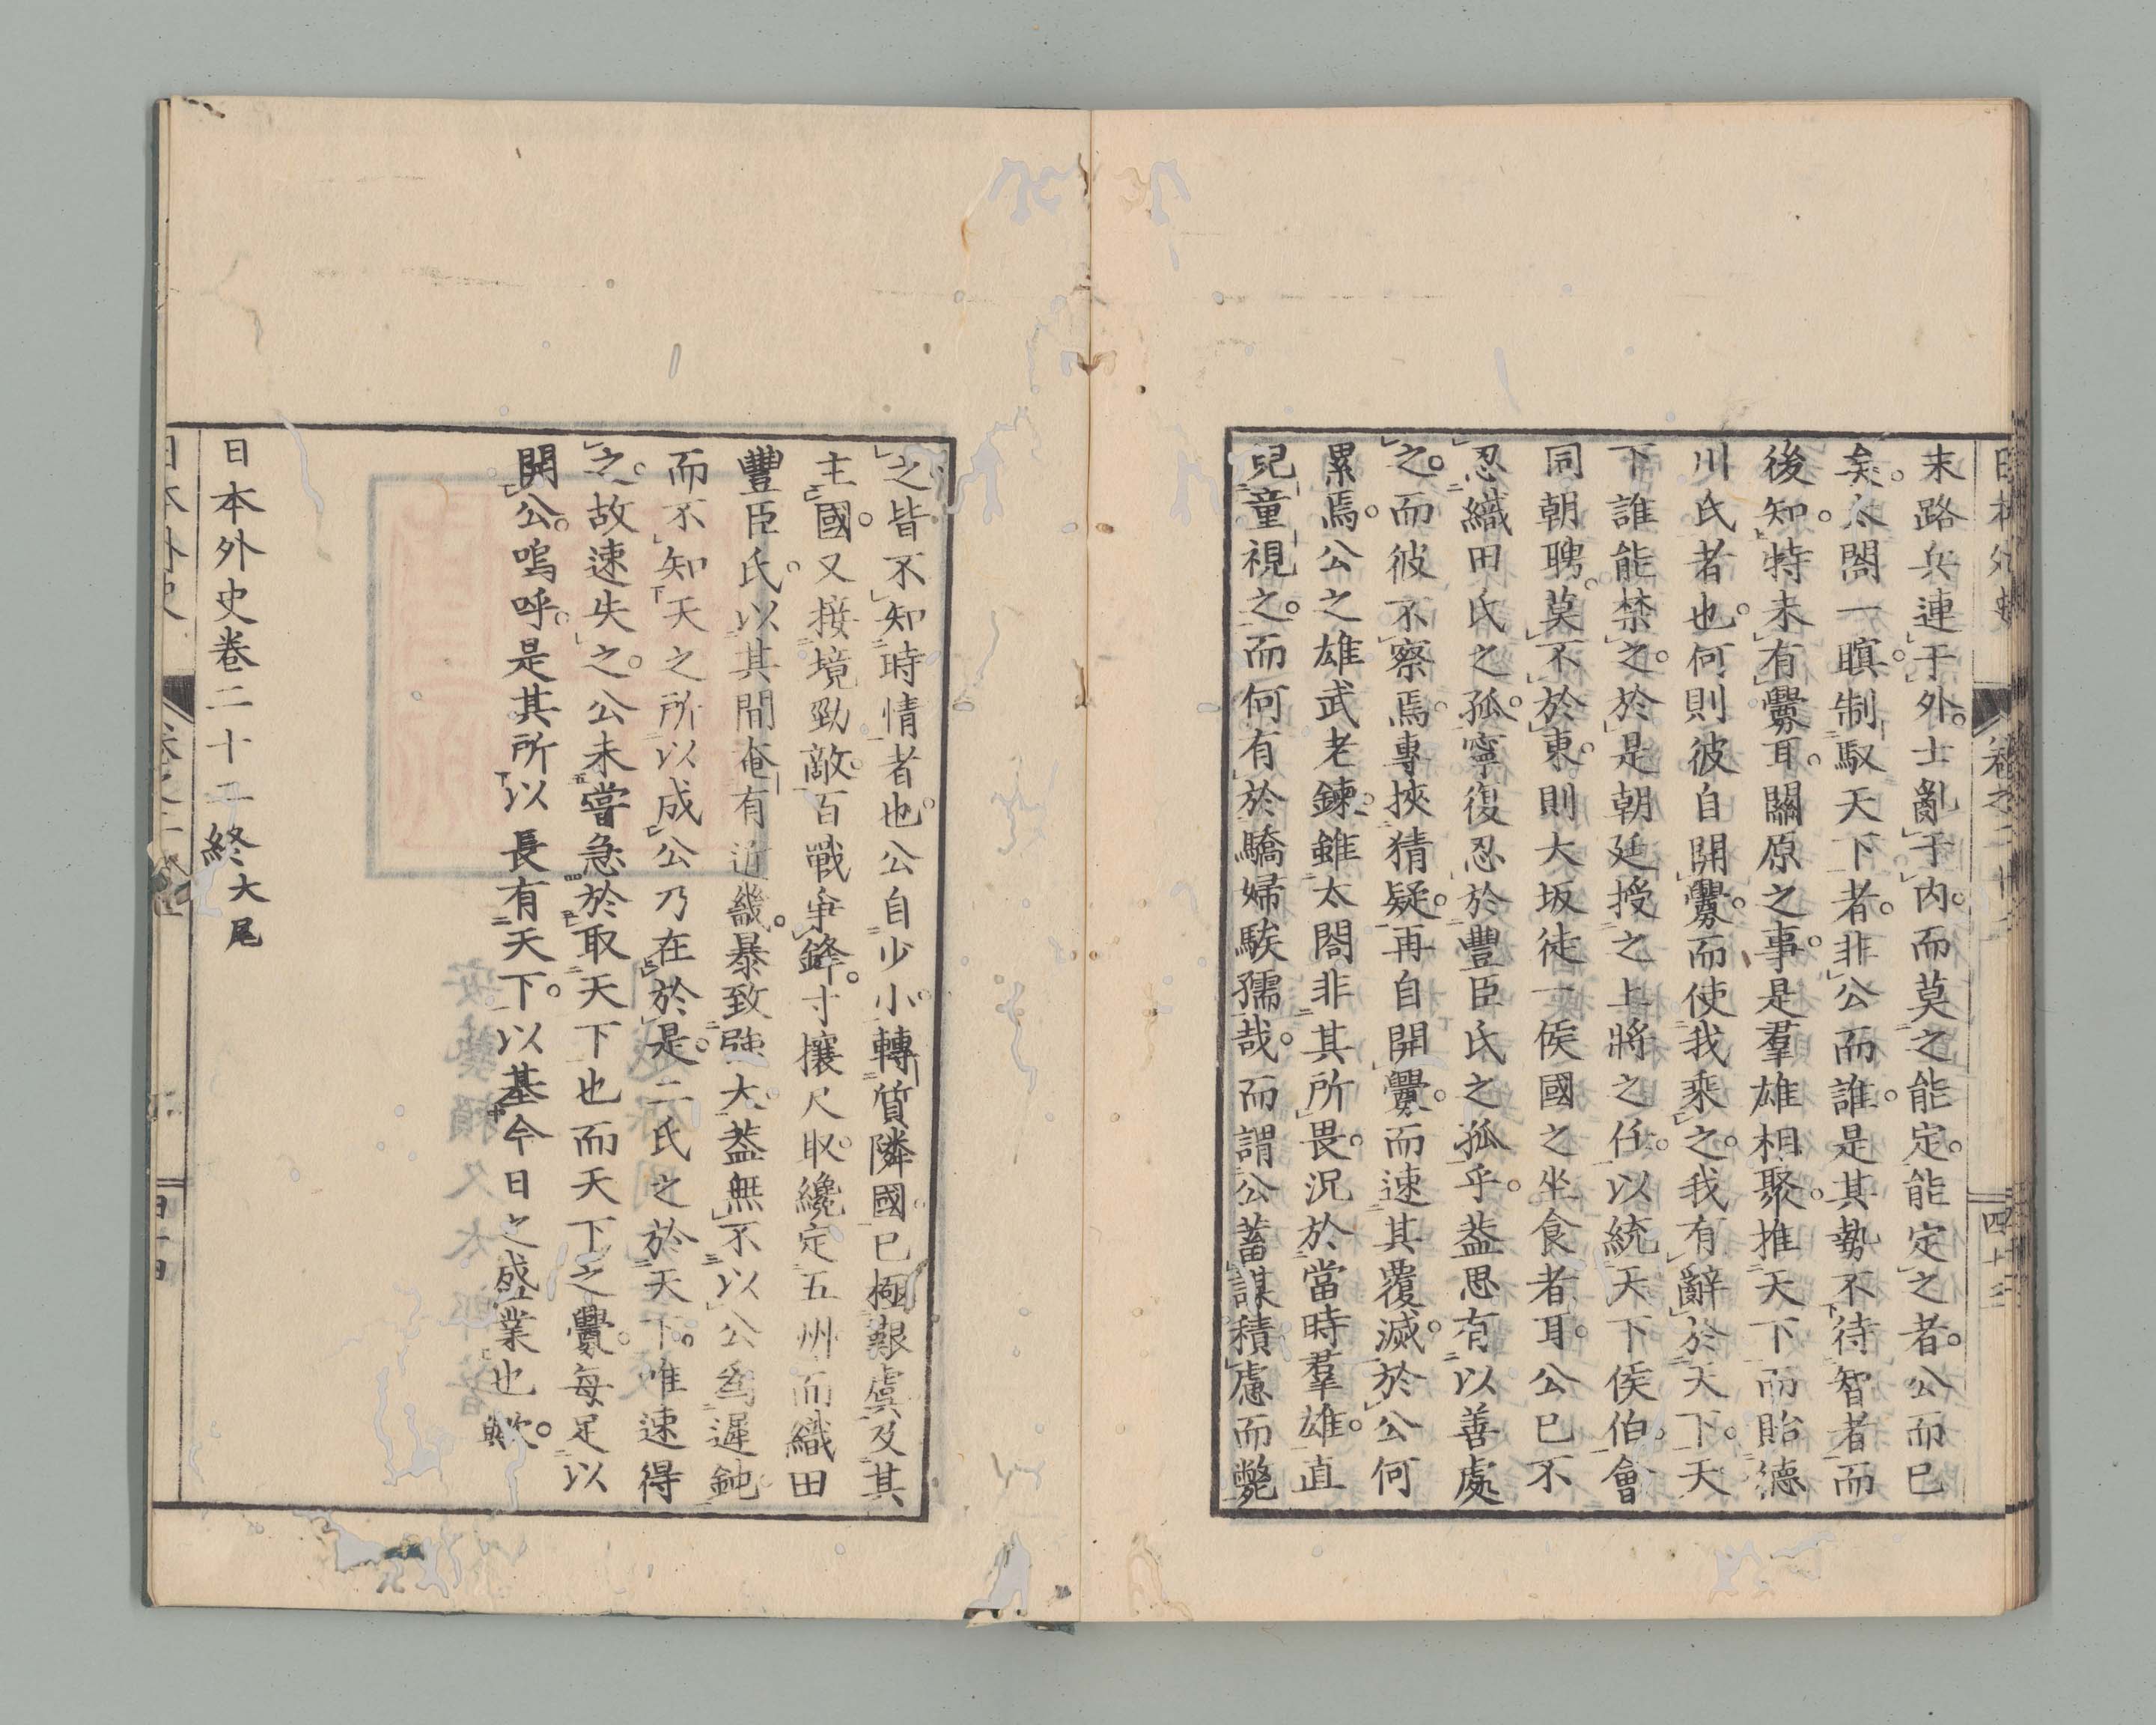 末路兵連于外。士亂于内。而莫之能定。能定之者。公而已
矣。太閤一瞑。制馭天下者。非公而誰。是其勢不待智者而
後知。特未有釁耳。關原之事。是羣雄相聚。推天下而貽德
川氏者也。何則彼自開釁。而使我乘之。我有辭於天下。天
下誰能禁之。於是朝廷授之上將之任。以統天下侯伯。會
同朝聘。莫不於東。則大坂徒一侯國之坐食者耳。公已不
忍織田氏之孤。寧復忍於豐臣氏之孤乎。蓋思有以善處
之。而彼不察焉。專挾猜疑。再自開釁。而速其覆滅。於公何
累焉。公之雄武老鍊。雖太閤非其所畏。況於當時羣雄。直
兒童視之。而何有於驕婦騃孺哉。而謂公蓄謀積慮而斃
之皆不知時情者也。公自少小。轉質隣國。已極艱虞及其
主國。又接境勁敵。百戰爭鋒。寸攘尺取。纔定五州而織田
豐臣氏。以其間奄有近畿。暴致強大。蓋無不以公爲遲鈍
而不知天之所以成公乃在於是。二氏之於天下。唯速得
之。故速失之。公未嘗急於取天下也而天下之釁。每足以
開公。嗚呼。是其所以長有天下。以基今日之盛業也歟。
日本外史卷二十二終大尾